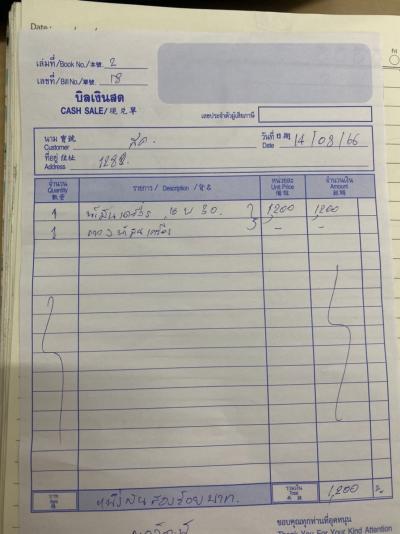 Date
เล่มที่/Book No./本號 2
เลขที่/Bill No./單號 18
บิลเงินสด
CASH SALE/現兌單
เลขประจำตัวผู้เสียภาษี
นาม 寶號 Customer สด.
วันที่ 日期 Date 14/08/66
ที่อยู่ 住址 Address
จำนวน Quantity 數量 รายการ / Description / 貨名 หน่วยละ Unit Price 價格 จำนวนเงิน Amount 銀碼
1 1200 1,200
1 - -
บาท Baht รวมเงิน Total 共銀 1,200 -
หนึ่งพันสองร้อยบาท.
ขอบคุณทุกท่านที่อุดหนุน
Thank You For Your Kind Attention